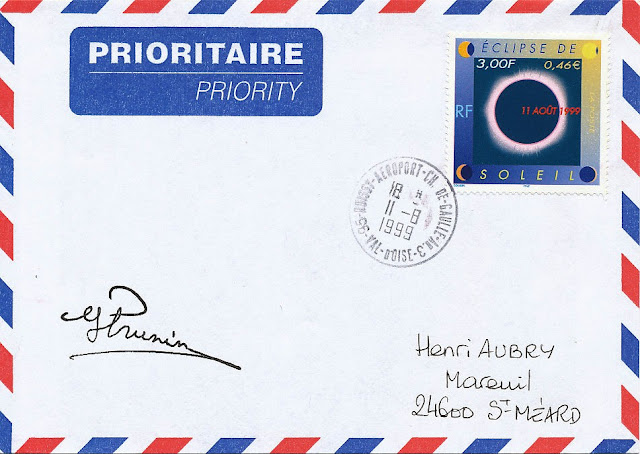 PRIORITAIRE
PRIORITY
ÉCLIPSE DE
3,00F 0,46€
RF
11 AOÛT 1999
LA POSTE
SOLEIL
95-ROISSY-AÉROPORT-CH. DE-GAULLE-AÉR.3-VAL-D'OISE-
18 H
11-8
1999
Henri AUBRY
Mareuil
24600 ST MÉARD